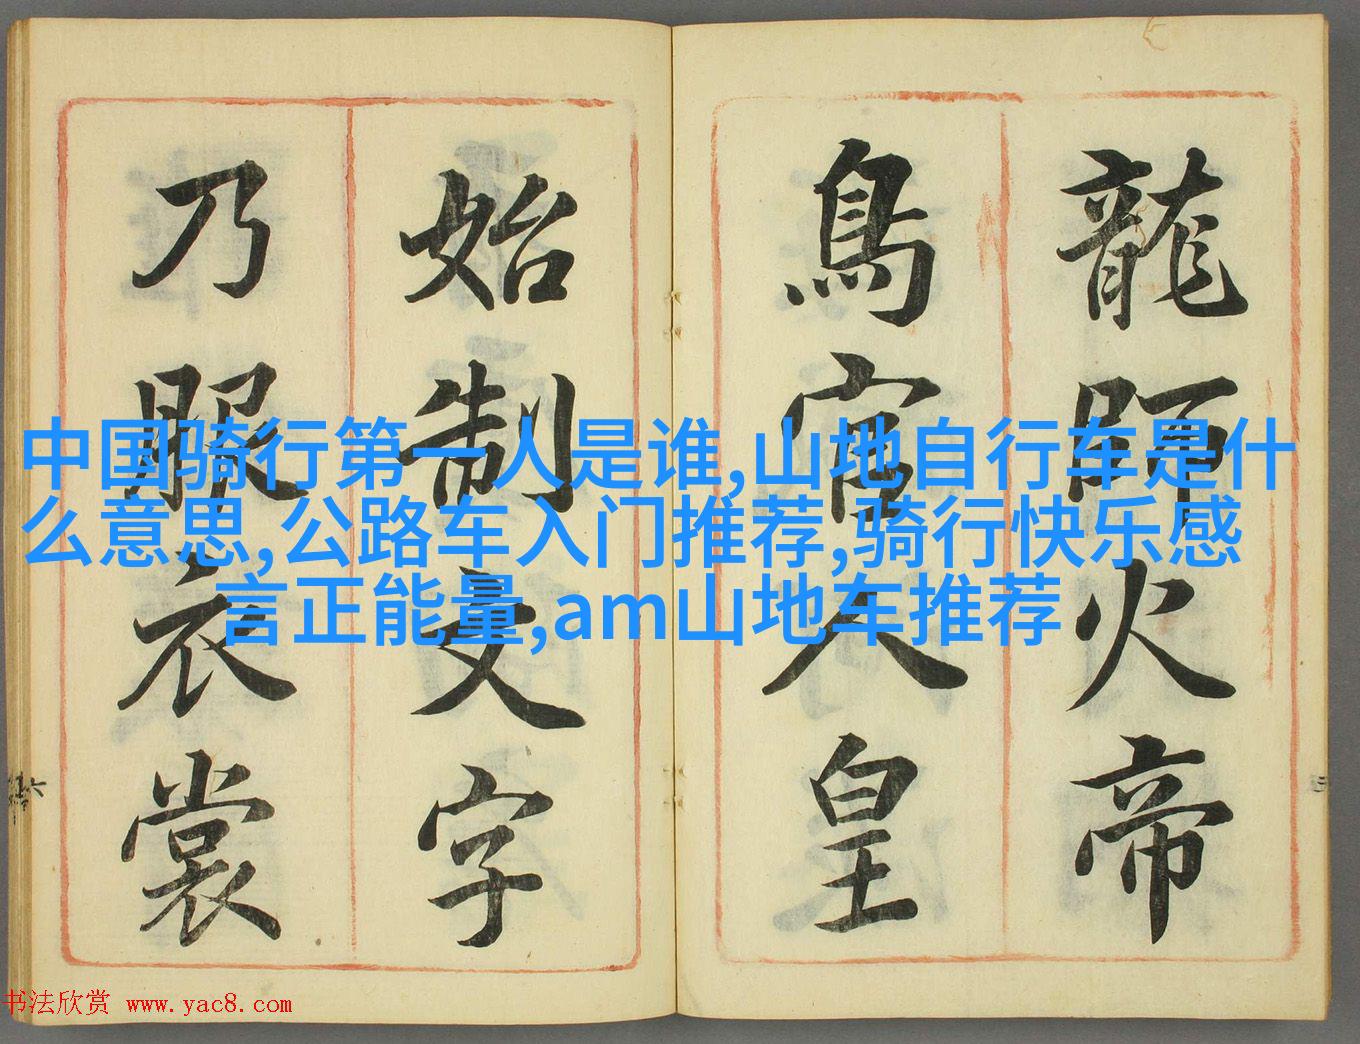 龍師火帝
鳥官人皇
始制文字
乃服衣裳
中国骑行第一人是谁,山地自行车是什
么意思,公路车入门推荐,骑行快乐感
言正能量,am山地车推荐
书法欣赏 www.yac8.com